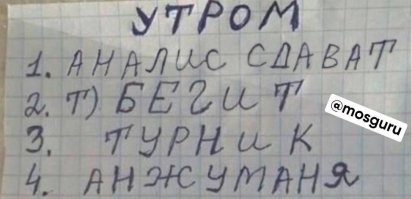 УТРОМ
1. АНАЛИС СДАВАТ
2. Т) БЕГИТ
@mosguru
3. ТУРНИК
4. АНЖУМАНЯ